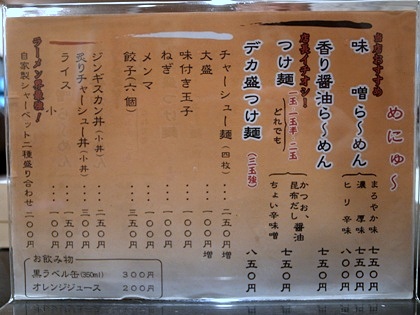 めにゅ〜
当店おすすめ
味噌ら〜めん
まろやか味 七五〇円
濃厚味 七五〇円
ヒリ辛味 八〇〇円
店長イチオシ！
香り醤油ら〜めん
七五〇円
つけ麺
一玉 一玉半 二玉
どれでも
かつお、昆布だし 醤油
ちょい辛味噌
七五〇円
デカ盛つけ麺（三玉強）
八五〇円
チャーシュー麺（四枚）・・・二五〇円増
大盛・・・一〇〇円増
味付き玉子・・・一〇〇円
ねぎ・・・一〇〇円
メンマ・・・一〇〇円
餃子（六個）・・・三五〇円
ジンギスカン丼（小丼）・・・二五〇円
炙りチャーシュー丼（小丼）・・・三五〇円
ライス・・・一五〇円
小・・・一〇〇円
自家製シャーベット二種盛り合わせ 二〇〇円
お飲み物
黒ラベル缶(350ml) 300円
オレンジジュース 200円